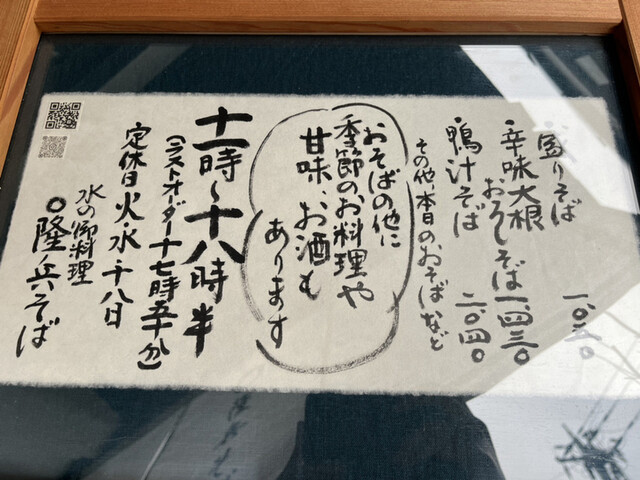 盛りそば 一、〇二〇
辛味大根
おろしそば 一、四三〇
鴨汁そば 二、〇四〇
その他本日のおそばなど
おそばの他に
季節のお料理や
甘味、お酒も
あります
十一時〜十八時半
(ラストオーダー十七時五十分)
定休日 火・水・十八日
水の御料理
隆兵そば